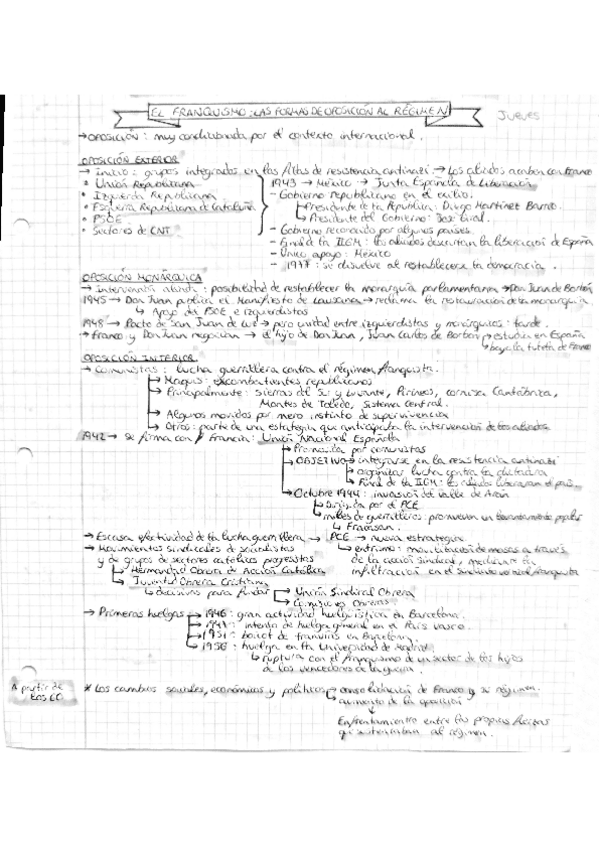 EL FRANQUISMO: LAS FORMAS DE OPOSICIÓN AL RÉGIMEN
Jueves
→ OPOSICIÓN: muy condicionada por el contexto internacional.
OPOSICIÓN EXTERIOR
→ Inicio: grupos integrados en las filas de resistencia antinazi → Los aliados acaben con Franco
• Unión Republicana
• Izquierda Republicana
• Esquerra Republicana de Cataluña
• PSOE
• Sectores de CNT
1943 → México → Junta Española de Liberación
- Gobierno republicano en el exilio:
↳ Presidente de la República: Diego Martínez Barrio.
↳ Presidente del Gobierno: José Giral.
- Gobierno reconocido por algunos países.
- Final de la IIGM: los aliados descartan la liberación de España
- Único apoyo: México
- 1977: se disuelve al restablecerse la democracia.
OPOSICIÓN MONÁRQUICA
→ Intervención aliada: posibilidad de restablecer la monarquía parlamentaria → Don Juan de Borbón
1945 → Don Juan publica el Manifiesto de Lausana → reclama la restauración de la monarquía
↳ Apoyo del PSOE e izquierdistas
1948 → Pacto de San Juan de Luz → pero unidad entre izquierdistas y monárquicos: tarde.
→ Franco y Don Juan negocian → el hijo de Don Juan, Juan Carlos de Borbón → estudia en España
↳ bajo la tutela de Franco
OPOSICIÓN INTERIOR
→ Comunistas: lucha guerrillera contra el régimen franquista.
↳ Maquis: excombatientes republicanos
↳ Principalmente: sierras del Sur y Levante, Pirineos, cornisa Cantábrica,
Montes de Toledo, Sistema Central.
↳ Algunos movidos por mero instinto de supervivencia
↳ Otros: parte de una estrategia que anticipaba la intervención de los aliados
1942 → Se firma con Francia: Unión Nacional Española
↳ Promovida por comunistas
↳ OBJETIVO → integrarse en la resistencia antinazi
↳ organizar lucha contra la dictadura
↳ Final de la IIGM: los aliados liberaran el país.
↳ Octubre 1944: invasión del Valle de Arán
↳ Dirigida por el PCE
↳ miles de guerrilleros: promueven un levantamiento popular
↳ Fracasan.
→ Escasa efectividad de la lucha guerrillera → PCE → nueva estrategia
↳ entrismo: movilización de masas a través
de la acción sindical, mediante la
infiltración en el sindicato vertical franquista
→ Movimientos sindicales de socialistas
y de grupos de sectores católicos progresistas
↳ Hermandad Obrera de Acción Católica
↳ Juventud Obrera Cristiana
↳ decisivos para fundar
→ Unión Sindical Obrera
→ Comisiones Obreras
→ Primeras huelgas → 1946: gran actividad huelguística en Barcelona.
→ 1947: intento de huelga general en el País Vasco.
→ 1951: boicot de tranvías en Barcelona
→ 1956: huelga en la Universidad de Madrid
↳ ruptura con el franquismo de un sector de los hijos
de los vencedores de la guerra.
A partir de
los 60
* Los cambios sociales, económicos y políticos → consolidación de Franco y su régimen.
↳ aumento de la oposición
↓
Enfrentamientro entre las propias fuerzas
que sustentaban al régimen.